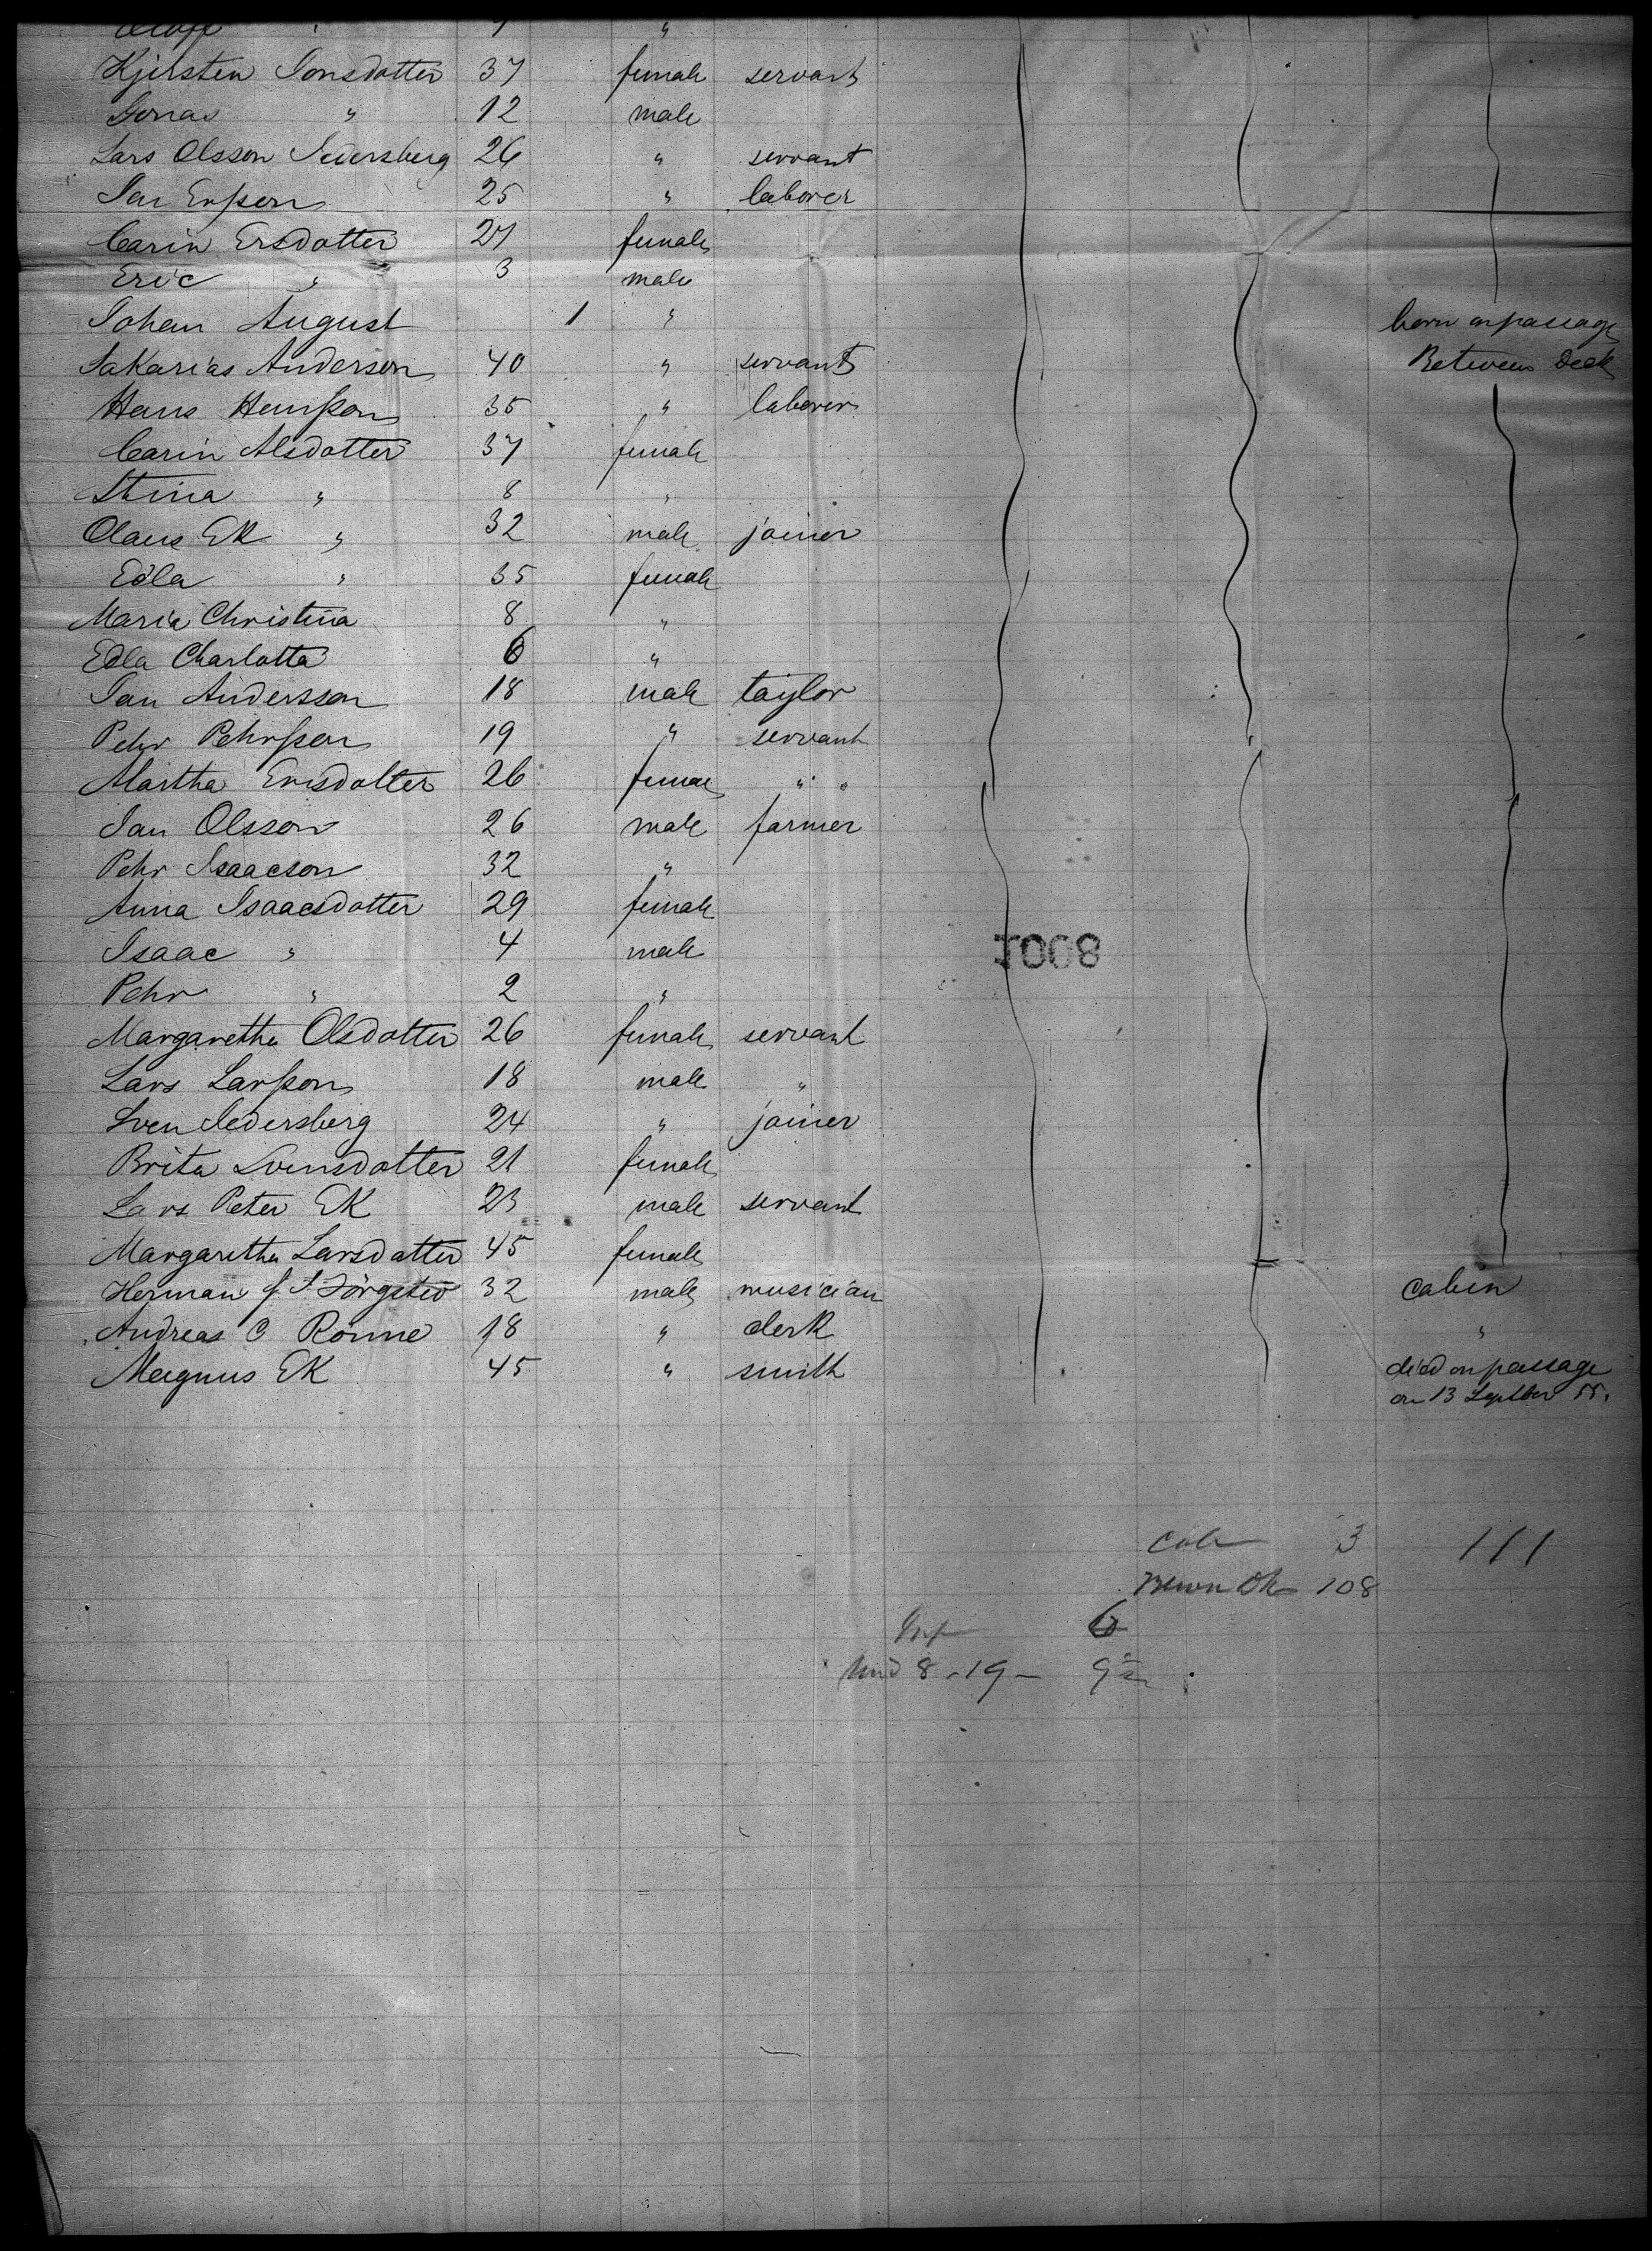 Kjersten Jonsdotter 37 female servant
Jonas " 12 male
Lars Olsson Sedersberg 26 " servant
Jan Ersson 25 " laborer
Carin Ersdotter 27 female
Eric " 3 male
Johan August 1 " born on passage
Sakarias Anderson 40 " servant Between Deck
Hans Hansson 35 " laborer
Carin Alsdotter 37 female
Stina " 8 "
Olaus Ek " 32 male joiner
Edla " 35 female
Maria Christina 8 "
Edla Charlotta 6 "
Jan Andersson 18 male taylor
Pehr Pehrsson 19 " servant
Martha Ersdotter 26 female " "
Jan Olsson 26 male farmer
Pehr Isaacson 32 "
Anna Isaacsdotter 29 female
Isaac " 4 male
Pehr " 2 "
Margaretha Olsdotter 26 female servant
Lars Larsson 18 male "
Sven Sedersberg 24 " joiner
Brita Svensdotter 21 female
Lars Peter Ek 23 male servant
Margaretha Larsdatter 45 female
Herman 32 male musician Cabin
Andreas C Rönne 18 " clerk "
Magnus Ek 45 " smith died on passage
on 13 Septber 55.
1008
3 111
108
6
8-19-